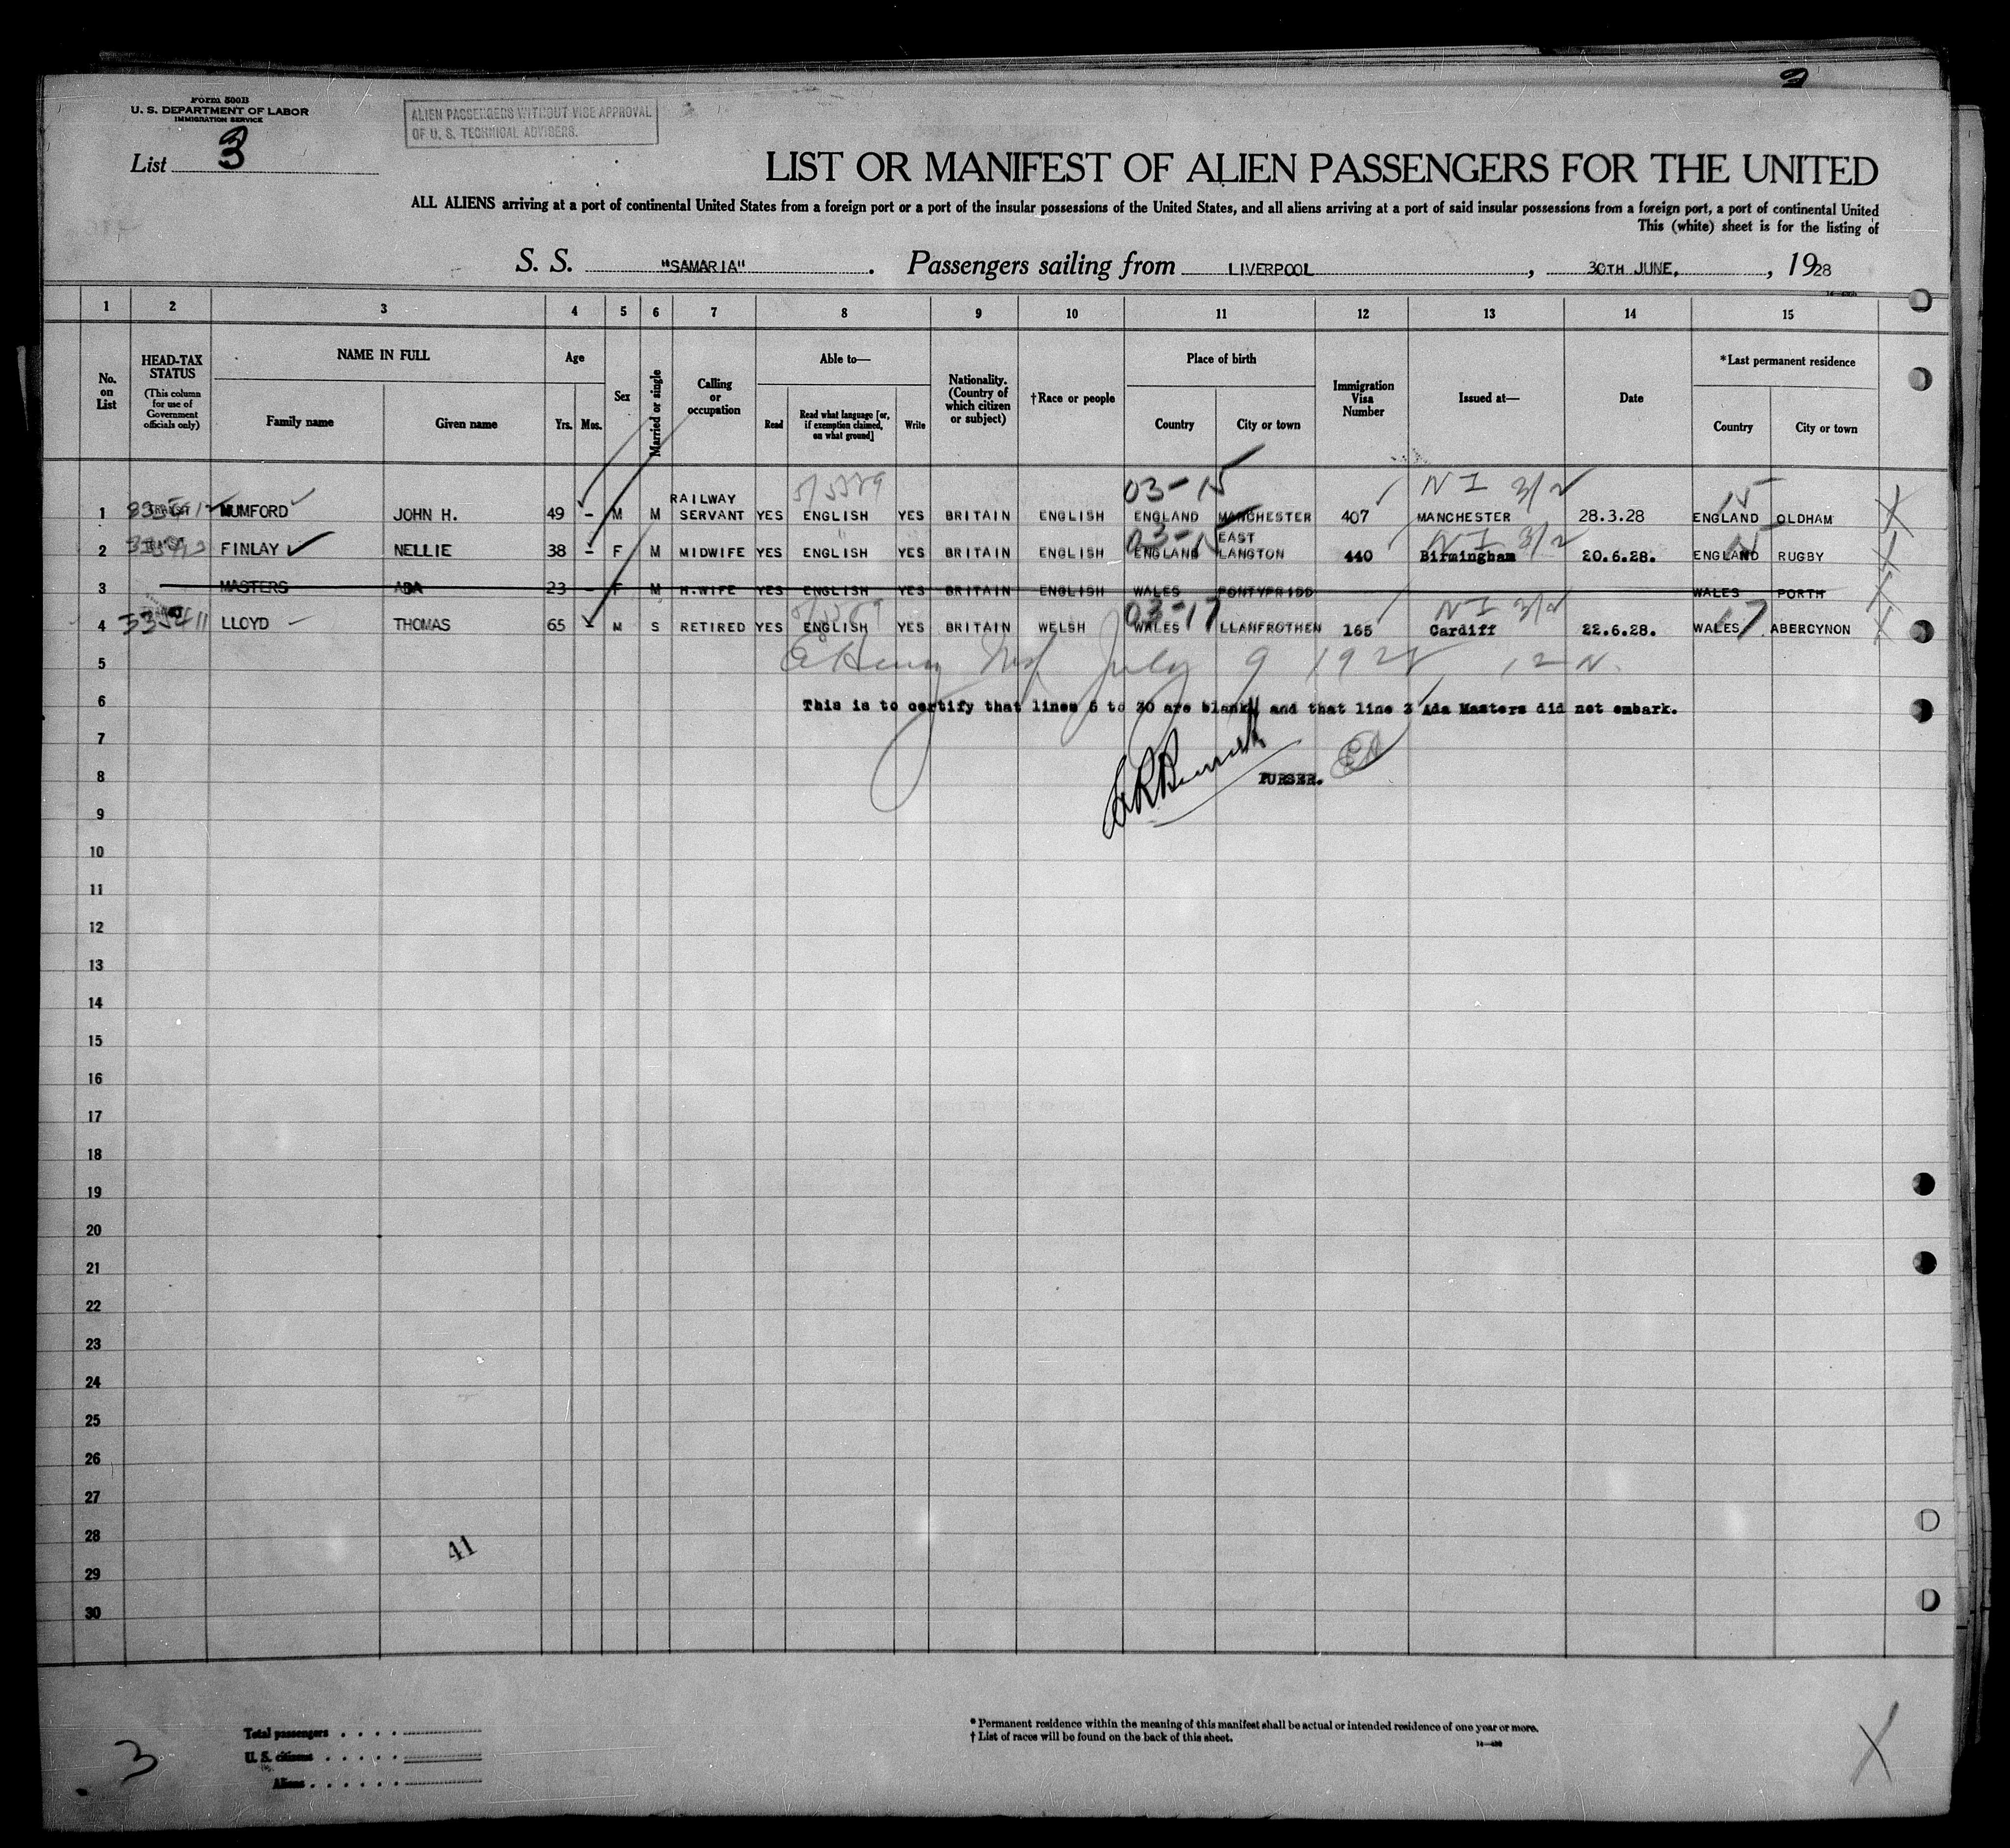 3
Form 500B
U. S. DEPARTMENT OF LABOR
IMMIGRATION SERVICE
ALIEN PASSENGERS WITHOUT VISE APPROVAL
OF U. S. TECHNICAL ADVISERS.
List 3
LIST OR MANIFEST OF ALIEN PASSENGERS FOR THE UNITED
ALL ALIENS arriving at a port of continental United States from a foreign port or a port of the insular possessions of the United States, and all aliens arriving at a port of said insular possessions from a foreign port, a port of continental United
This (white) sheet is for the listing of
S. S. "SAMARIA". Passengers sailing from LIVERPOOL, 30TH JUNE, 1928
1 2 3 4 5 6 7 8 9 10 11 12 13 14 15
No. on List
HEAD-TAX STATUS
(This column for use of Government officials only)
NAME IN FULL
Family name
Given name
Age
Yrs. Mos.
Sex
Married or single
Calling or occupation
Able to—
Read
Read what language [or, if exemption claimed, on what ground]
Write
Nationality. (Country of which citizen or subject)
†Race or people
Place of birth
Country
City or town
Immigration Visa Number
Issued at—
Date
*Last permanent residence
Country
City or town
03-15 NI 3/2 15
1 MUMFORD JOHN H. 49 - M M RAILWAY SERVANT YES ENGLISH YES BRITAIN ENGLISH ENGLAND MANCHESTER 407 MANCHESTER 28.3.28 ENGLAND OLDHAM
03-15 NI 3/2 15
2 FINLAY NELLIE 38 - F M MIDWIFE YES ENGLISH YES BRITAIN ENGLISH ENGLAND EAST LANGTON 440 Birmingham 20.6.28. ENGLAND RUGBY
3 MASTERS ADA 23 - F M H.WIFE YES ENGLISH YES BRITAIN ENGLISH WALES PONTYPRIDD WALES PORTH
03-17 NI 3/2 17
4 LLOYD THOMAS 65 - M S RETIRED YES ENGLISH YES BRITAIN WELSH WALES LLANFROTHEN 165 Cardiff 22.6.28. WALES ABERCYNON
5 July 9 1928 12 N.
6 This is to certify that lines 5 to 30 are blank, and that line 3 Ada Masters did not embark.
7
8 PURSER.
9
10
11
12
13
14
15
16
17
18
19
20
21
22
23
24
25
26
27
28
41
29
30
Total passengers
U. S. citizens
Aliens
3
* Permanent residence within the meaning of this manifest shall be actual or intended residence of one year or more.
† List of races will be found on the back of this sheet.